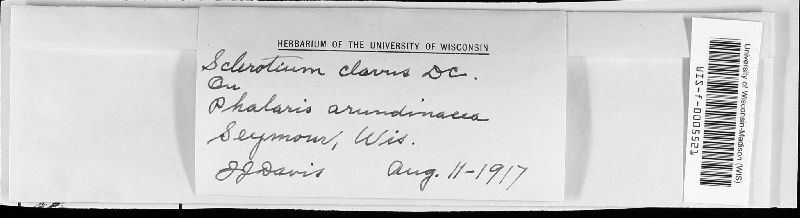 HERBARIUM OF THE UNIVERSITY OF WISCONSIN
Sclerotium clavus DC.
On
Phalaris arundinacea
Seymour, Wis.
JJDavis Aug. 11-1917
University of Wisconsin-Madison (WIS)
WIS-f-0005521